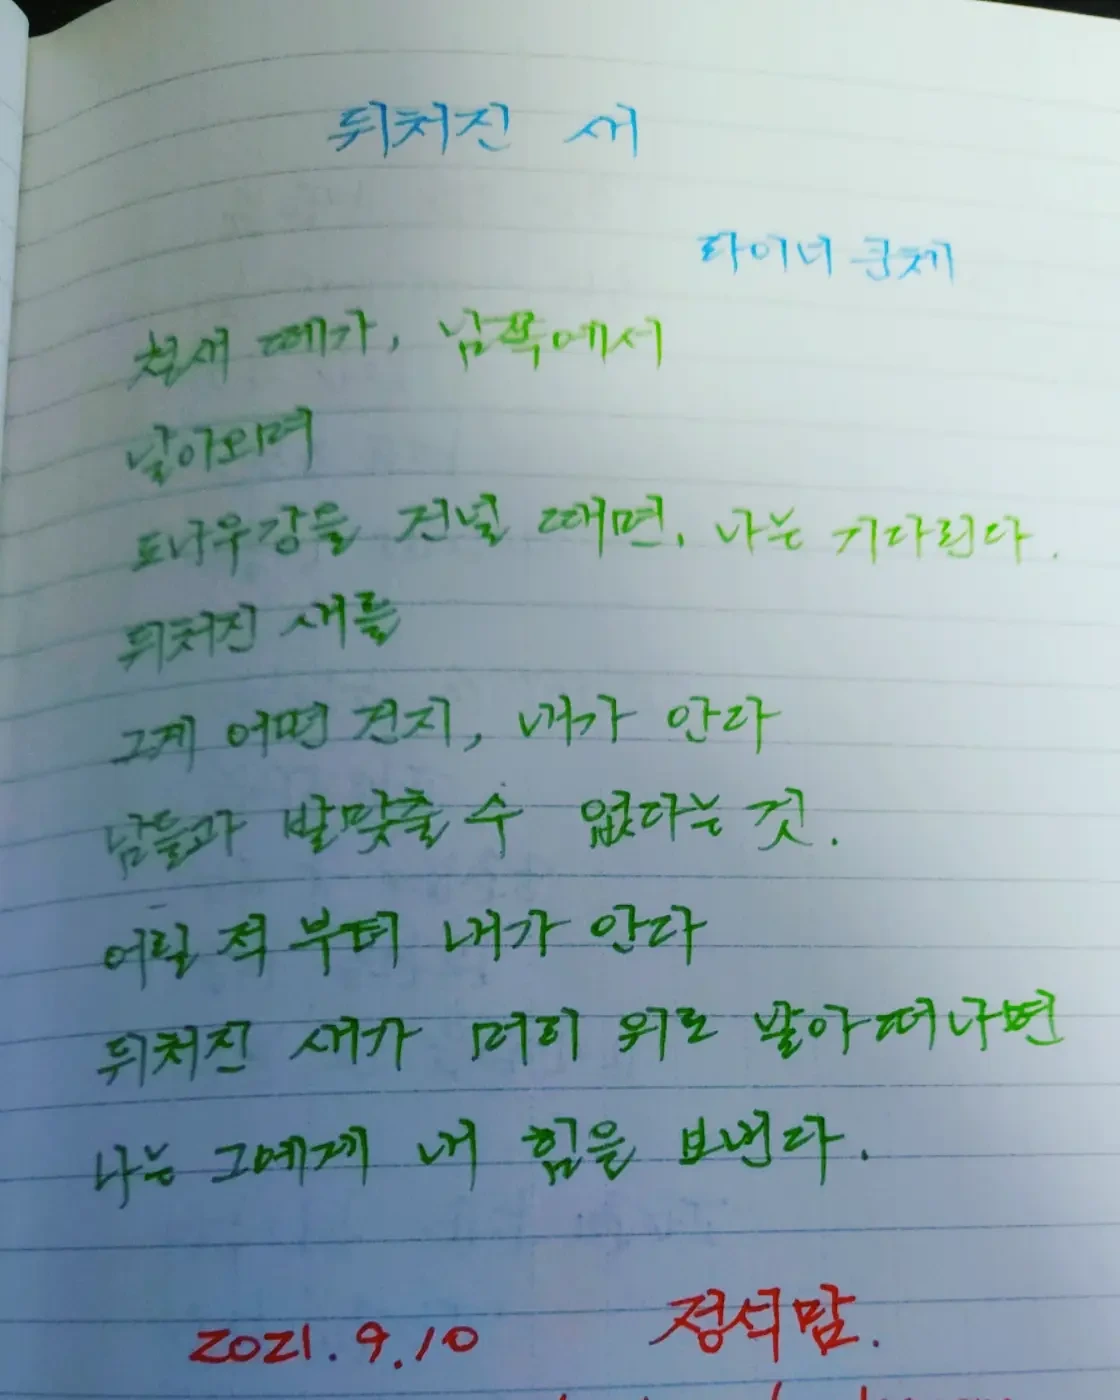 뒤처진 새
라이너 쿤체
철새 떼가, 남쪽에서
날아오며
도나우강을 건널 때면, 나는 기다린다.
뒤처진 새를
그게 어떤 건지, 내가 안다
남들과 발맞출 수 없다는 것.
어릴 적 부터 내가 안다
뒤처진 새가 머리 위로 날아 떠나면
나는 그에게 내 힘을 보낸다.
2021.9.10 정석맘.